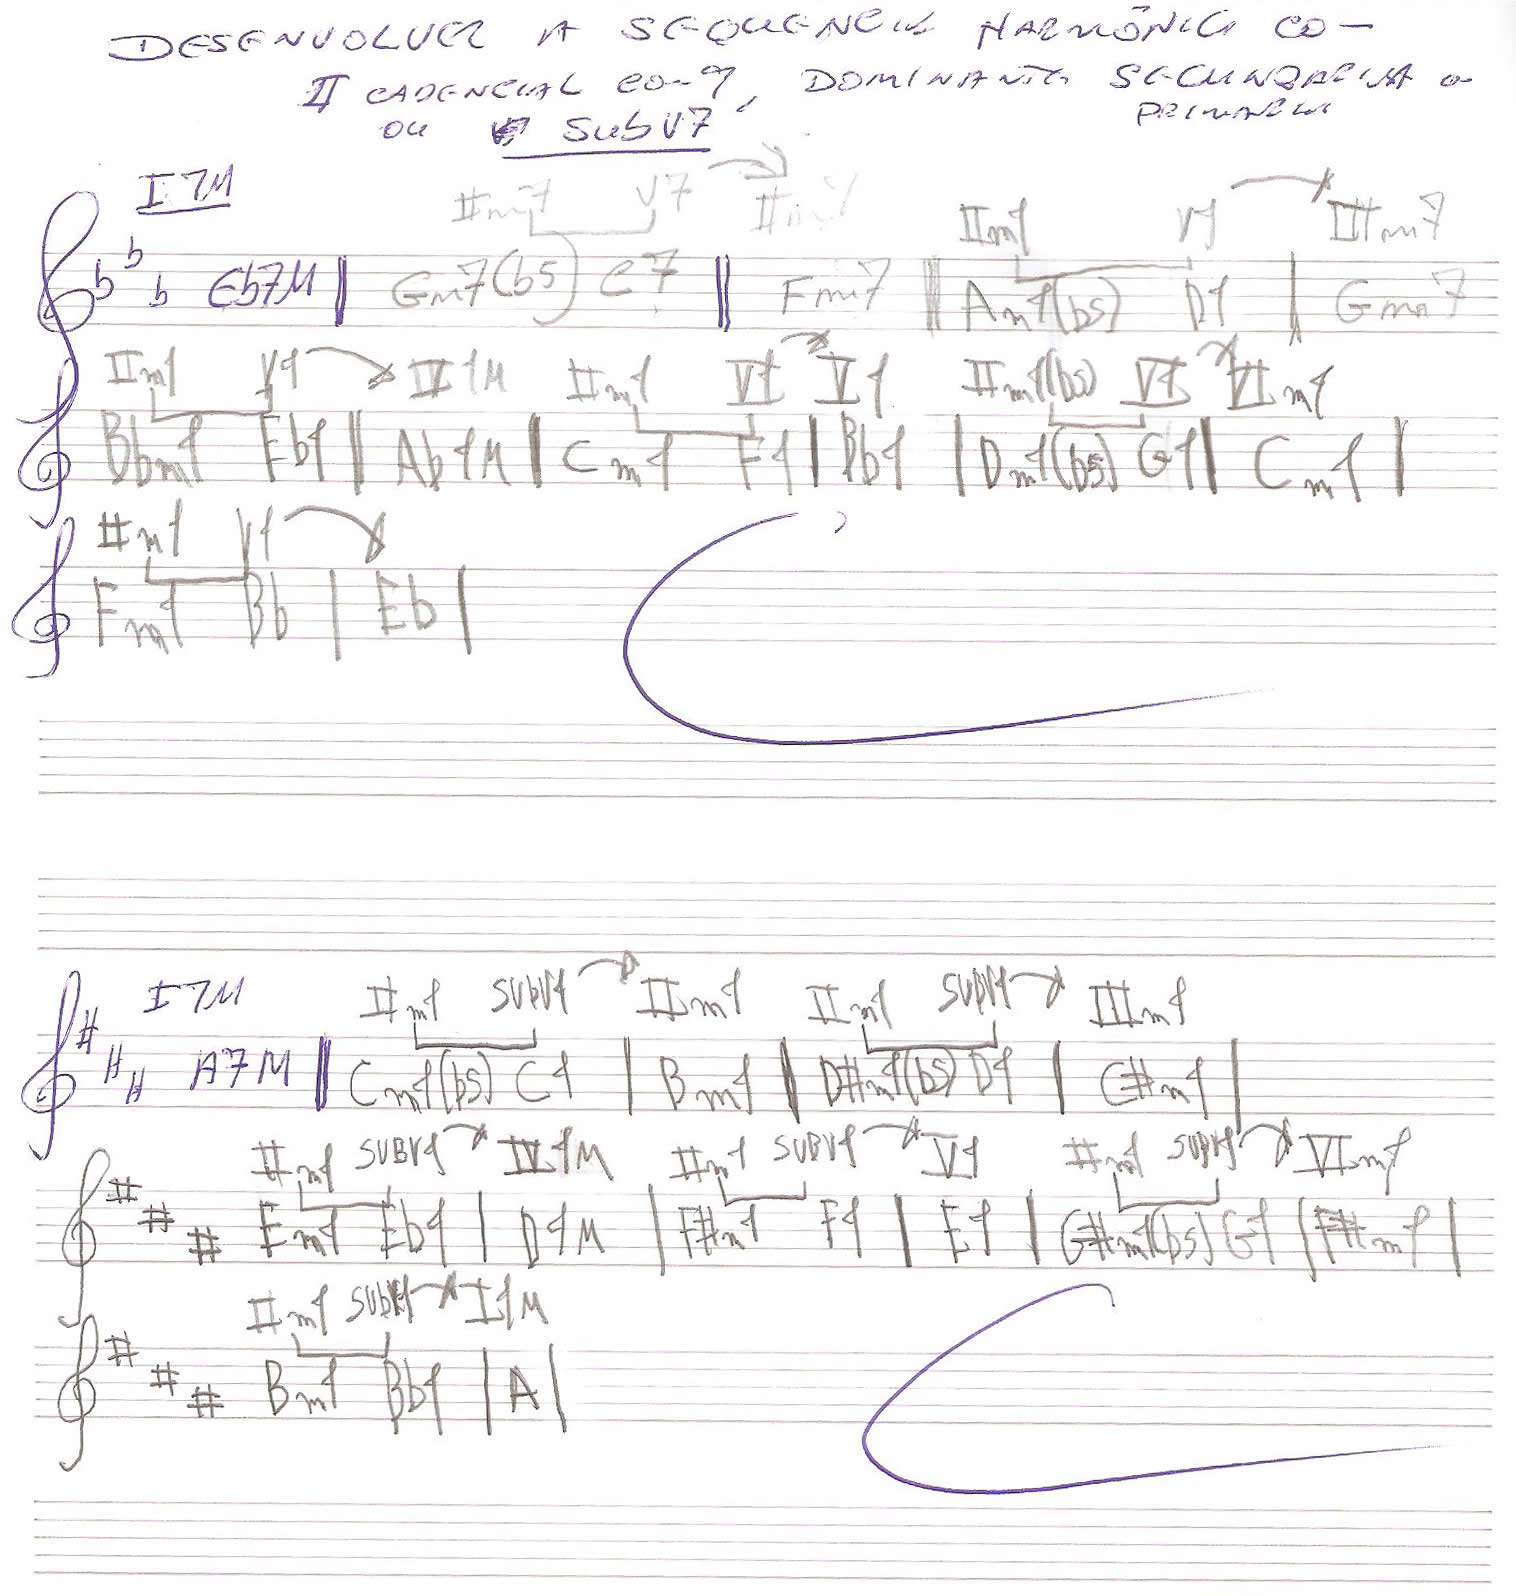 DESENVOLVER A SEQUENCIA HARMÔNICA COM
II CADENCIAL COM 7, DOMINANTE SECUNDARIA OU
PRIMARIA
OU SUBV7
I7M IIm7 V7 IIm7 IIm7 V7 IIIm7
Eb7M Gm7(b5) C7 Fm7 Am7(b5) D7 Gm7
IIm7 V7 IV7M IIm7 V7 V7 IIm7(b5) V7 VIm7
Bbm7 Eb7 Ab7M Cm7 F7 Bb7 Dm7(b5) G7 Cm7
IIm7 V7
Fm7 Bb Eb
I7M IIm7 SUBV7 IIm7 IIm7 SUBV7 IIIm7
A7M Cm7(b5) C7 Bm7 D#m7(b5) D7 C#m7
IIm7 SUBV7 IV7M IIm7 SUBV7 V7 IIm7 SUBV7 VIm7
Em7 Eb7 D7M F#m7 F7 E7 G#m7(b5) G7 F#m7
IIm7 SUBV7 I7M
Bm7 Bb7 A